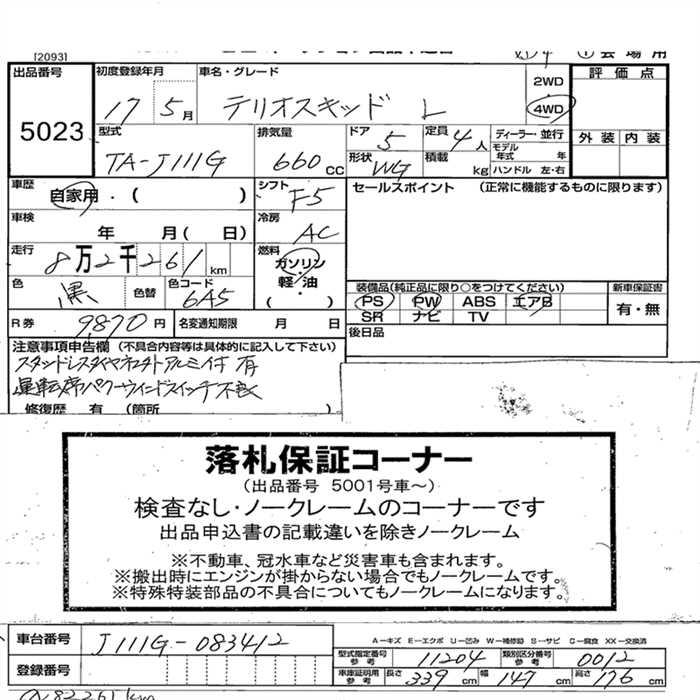 [2093]
① 会場用
出品番号 初度登録年月 車名・グレード 2WD 4WD 評価点
5023 17 5月 テリオスキッド L
外装 内装
型式 排気量 ドア 5 定員 4人 ディーラー 並行
TA-J111G 660CC 形状 WG 積載 kg モデル年式 年
ハンドル 左・右
車歴 自家用・( ) シフト F5 セールスポイント (正常に機能するものに限ります)
車検 年 月( 日) 冷房 AC
走行 8万2千261km 燃料 ガソリン・軽油・( )
色 黒 色替 色コード 6A5
装備品(純正品に限り○をつけてください) 新車保証書
PS PW ABS エアB 有・無
SR ナビ TV
R券 9,870円 名変通知期限 月 日 後日品
注意事項申告欄 (不具合内容等は具体的に記入して下さい)
運転席パワーウインドスイッチ不良
修復歴 有 (箇所 )
落札保証コーナー
(出品番号 5001号車～)
検査なし・ノークレームのコーナーです
出品申込書の記載違いを除きノークレーム
※不動車、冠水車など災害車も含まれます。
※搬出時にエンジンが掛からない場合でもノークレームです。
※特殊特装部品の不具合についてもノークレームになります。
車台番号 J111G-083412
A－キズ E－エクボ U－凹み W－補修跡 S－サビ C－腐食 XX－交換済
型式指定番号 参考 11204 類別区分番号 参考 0012
登録番号 車庫証明用 参考 長さ 339cm 幅 147cm 高さ 176cm
82261km